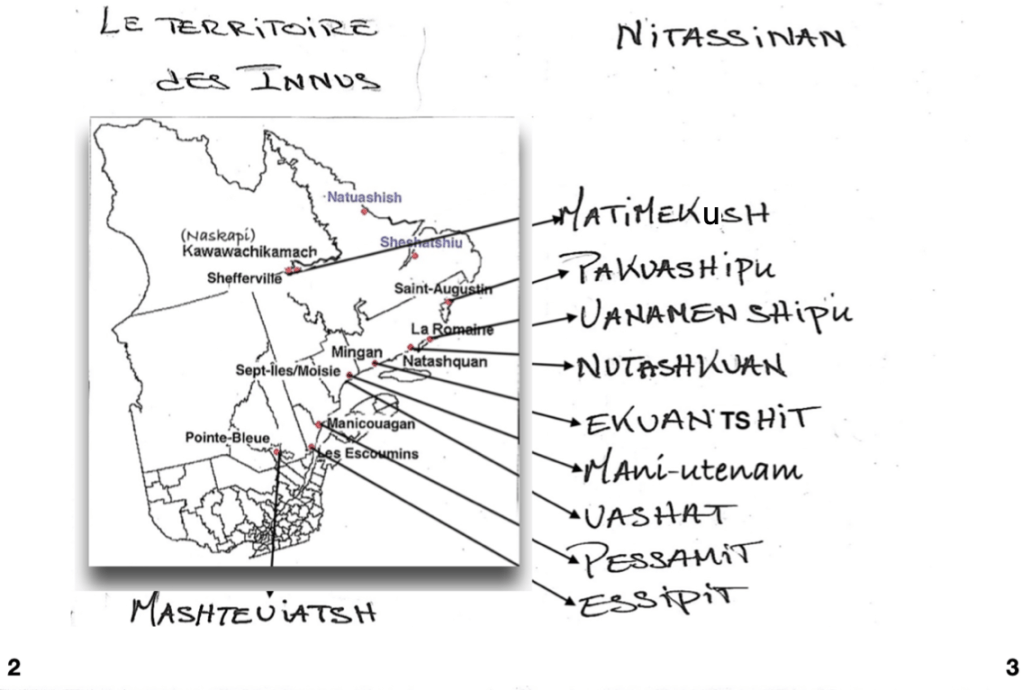 LE TERRITOIRE
DES INNUS
NITASSINAN
Natuashish
(Naskapi)
Kawawachikamach
Sheshatshiu
Shefferville
Saint-Augustin
La Romaine
Mingan
Natashquan
Sept-Iles/Moisie
Manicouagan
Pointe-Bleue
Les Escoumins
MATIMEKUSH
PAKUASHIPU
UANAMEN SHIPU
NUTASHKUAN
EKUANTSHIT
MANI-utenam
UASHAT
PESSAMIT
ESSIPIT
MASHTEUIATSH
2
3